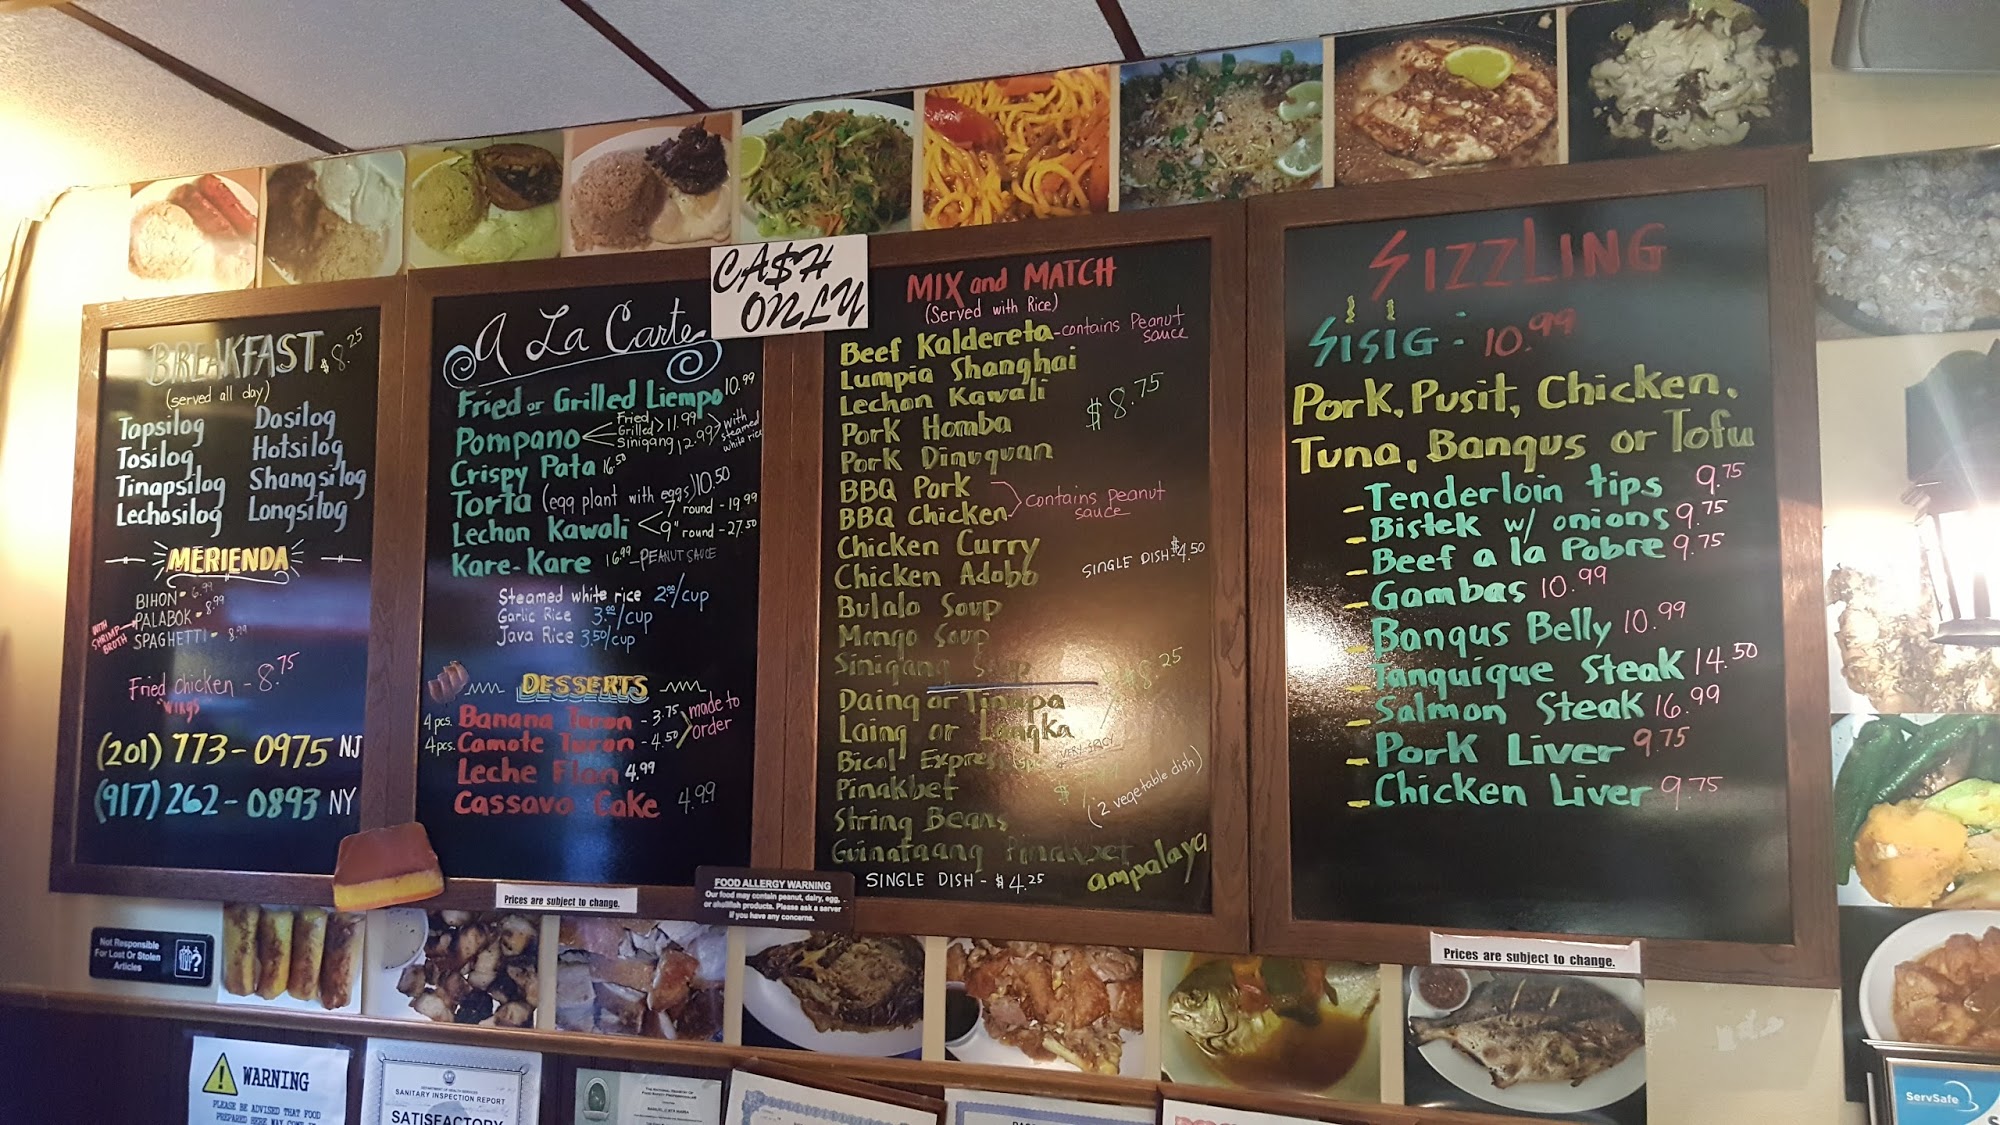 BREAKFAST $8.25
(served all day)
Tapsilog Dasilog
Tosilog Hotsilog
Tinapsilog Shangsilog
Lechosilog Longsilog
MERIENDA
BIHON - 6.99
PALABOK - 8.99
SPAGHETTI - 8.99
WITH SHRIMP BROTH
Fried Chicken - 8.75
wings
(201) 773-0975 NJ
(917) 262-0893 NY
CA$H
ONLY
A La Carte
Fried or Grilled Liempo 10.99
Pompano Fried Grilled > 11.99 Sinigang 12.99 with steamed white rice
Crispy Pata 16.50
Torta (egg plant with eggs) 10.50
Lechon Kawali < 7" round - 19.99
9" round - 27.50
Kare-Kare 16.99 - PEANUT SAUCE
Steamed white rice 2.00/cup
Garlic Rice 3.00/cup
Java Rice 3.50/cup
DESSERTS
4 pcs. Banana Turon - 3.75
4 pcs. Camote Turon - 4.50
made to order
Leche Flan 4.99
Cassava Cake 4.99
MIX and MATCH
(Served with Rice)
Beef Kaldereta - contains Peanut sauce
Lumpia Shanghai
Lechon Kawali
$8.75
Pork Homba
Pork Dinuguan
BBQ Pork
BBQ Chicken
contains peanut sauce
Chicken Curry
Chicken Adobo
SINGLE DISH - $4.50
Bulalo Soup
Mongo Soup
Sinigang Soup
Daing or Tinapa
8.25
Laing or Langka
Bicol Express VERY SPICY
Pinakbet
String Beans
(2 vegetable dish)
Guinataang Pinakbet
ampalaya
SINGLE DISH - $4.25
SIZZLING
SISIG - 10.99
Pork, Pusit, Chicken,
Tuna, Bangus or Tofu
- Tenderloin tips 9.75
- Bistek w/ onions 9.75
- Beef a la Pobre 9.75
- Gambas 10.99
- Bangus Belly 10.99
- Tanguique Steak 14.50
- Salmon Steak 16.99
- Pork Liver 9.75
- Chicken Liver 9.75
Prices are subject to change.
FOOD ALLERGY WARNING
Our food may contain peanut, dairy, egg,
or shellfish products. Please ask a server
if you have any concerns.
Prices are subject to change.
Not Responsible
For Lost Or Stolen
Articles
WARNING
PLEASE BE ADVISED THAT FOOD
PREPARED HERE MAY
SANITARY INSPECTION REPORT
SATISFACTORY
ServSafe